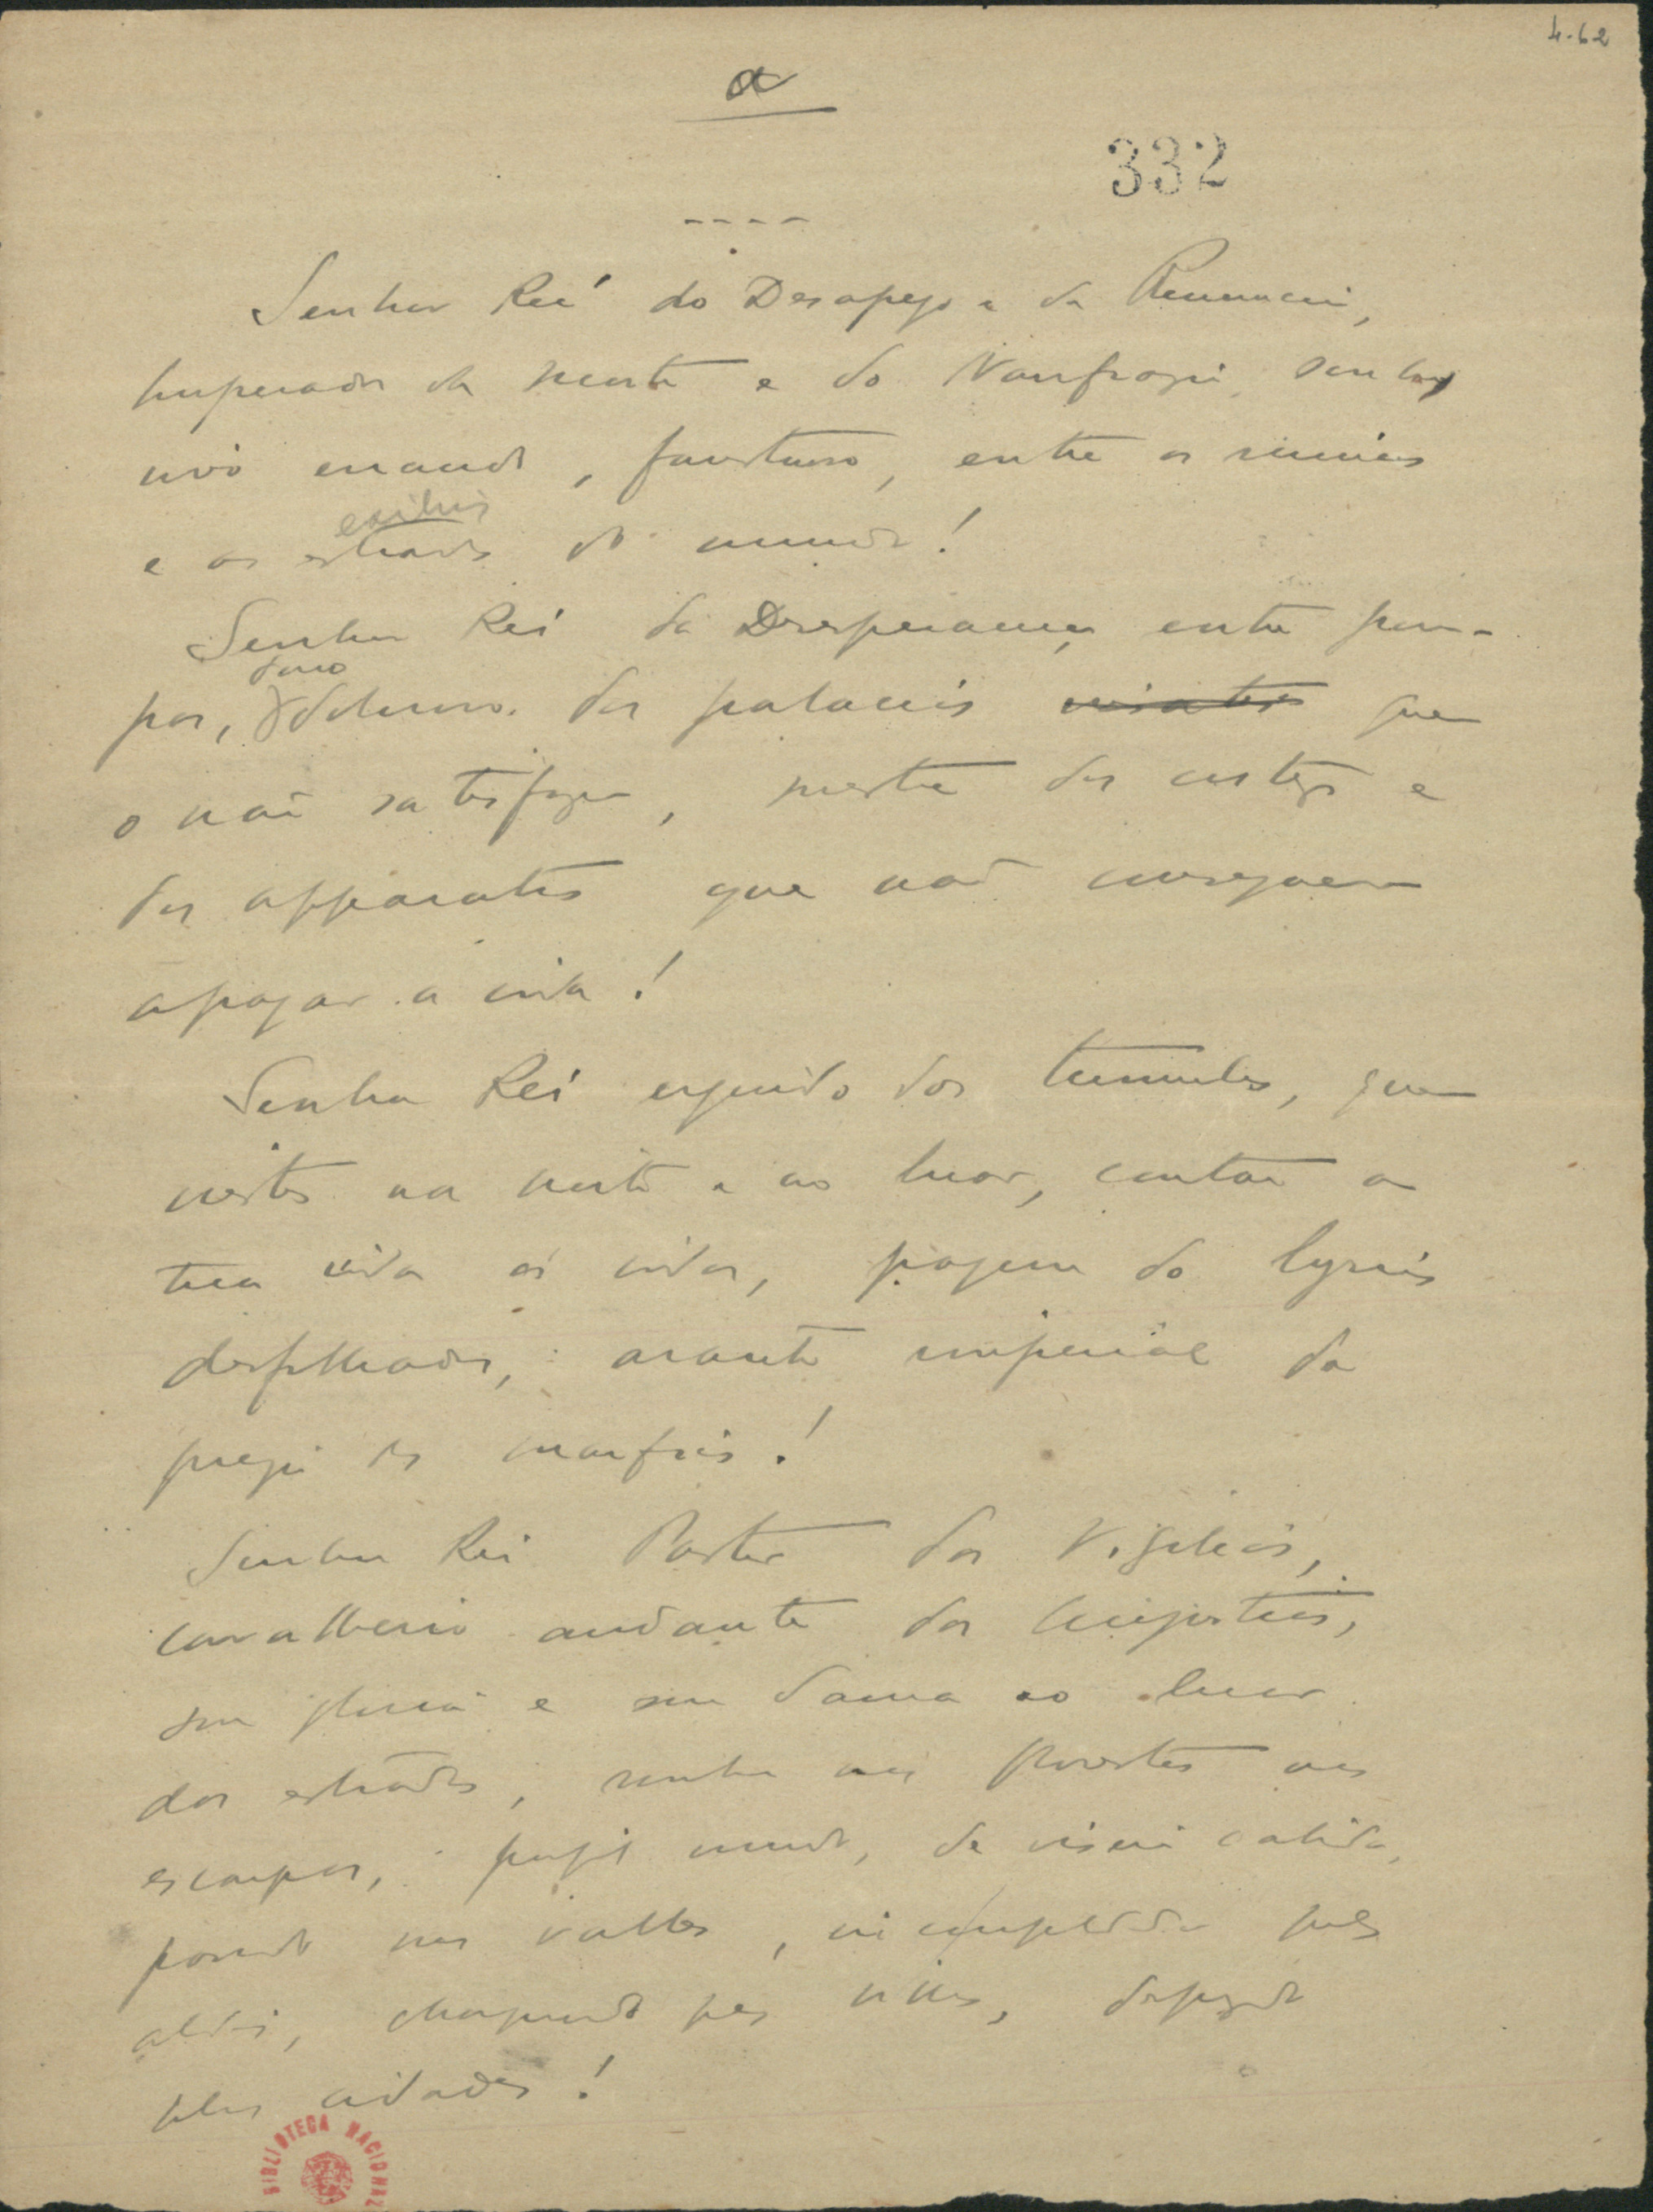 4-62
a
332
----
Senhor Rei do Desapego e da Renuncia,
Imperador da Morte e do Naufragio, sonho
vivo errando, faustuoso, entre as ruinas
exilios
e as estradas do mundo!
Senhor Rei da Desesperança entre pom-
dono
pas, doloroso dos palacios que
o não satisfazem, mestre dos cortejos e
dos apparatos que não conseguem
apagar a vida!
Senhor Rei erguido dos tumulos, que
viestes na noite e ao luar, contar a
tua vida ás vidas, pagem do lyrios
desfolhados, arauto imperial da
frieza dos marfins!
Senhor Rei Pastor das Vigilias,
cavalleiro andante das Angustias,
sem gloria e sem dama ao luar
das estradas, senhor nas florestas nas
escarpas, perfil mudo, de viseira cahida,
passando nos valles, incomprehendido pelas
aldeias, chasqueado pelas villas, desprezado
pelas cidades!
BIBLIOTECA NACIONAL